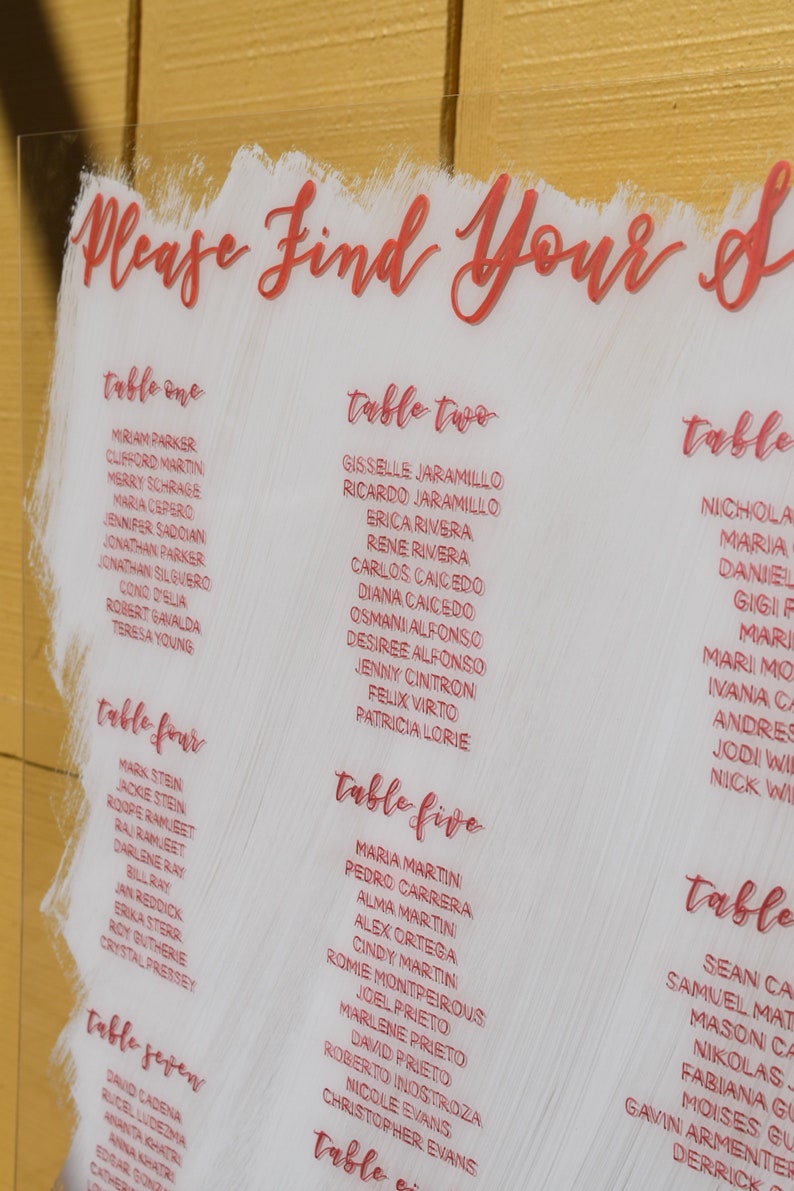 Please Find Your S
table one
MIRIAM PARKER
CLIFFORD MARTIN
MERRY SCHRAGE
MARIA CEPERO
JENNIFER SADOIAN
JONATHAN PARKER
JONATHAN SILGUERO
CONO D'ELIA
ROBERT GAVALDA
TERESA YOUNG
table two
GISSELLE JARAMILLO
RICARDO JARAMILLO
ERICA RIVERA
RENE RIVERA
CARLOS CAICEDO
DIANA CAICEDO
OSMANI ALFONSO
DESIREE ALFONSO
JENNY CINTRON
FELIX VIRTO
PATRICIA LORIE
table
NICHOLA
MARIA
DANIEL
GIGI F
MARI
MARI MO
IVANA CA
ANDRES
JODI WI
NICK WI
table four
MARK STEIN
JACKIE STEIN
ROOPE RAMJEET
RAJ RAMJEET
DARLENE RAY
BILL RAY
JAN REDDICK
ERIKA STERR
ROY GUTHERIE
CRYSTAL PRESSEY
table five
MARIA MARTIN
PEDRO CARRERA
ALMA MARTIN
ALEX ORTEGA
CINDY MARTIN
ROMIE MONTPEIROUS
JOEL PRIETO
MARLENE PRIETO
DAVID PRIETO
ROBERTO INOSTROZA
NICOLE EVANS
CHRISTOPHER EVANS
table
SEAN CA
SAMUEL MAT
MASON CA
NIKOLAS
FABIANA GU
MOISES GU
GAVIN ARMENTER
DERRICK
table seven
DAVID CADENA
RUCEL LUDEZMA
ANANTA KHATRI
ANNA KHATRI
EDGAR GONZA
CATHERI
table ei